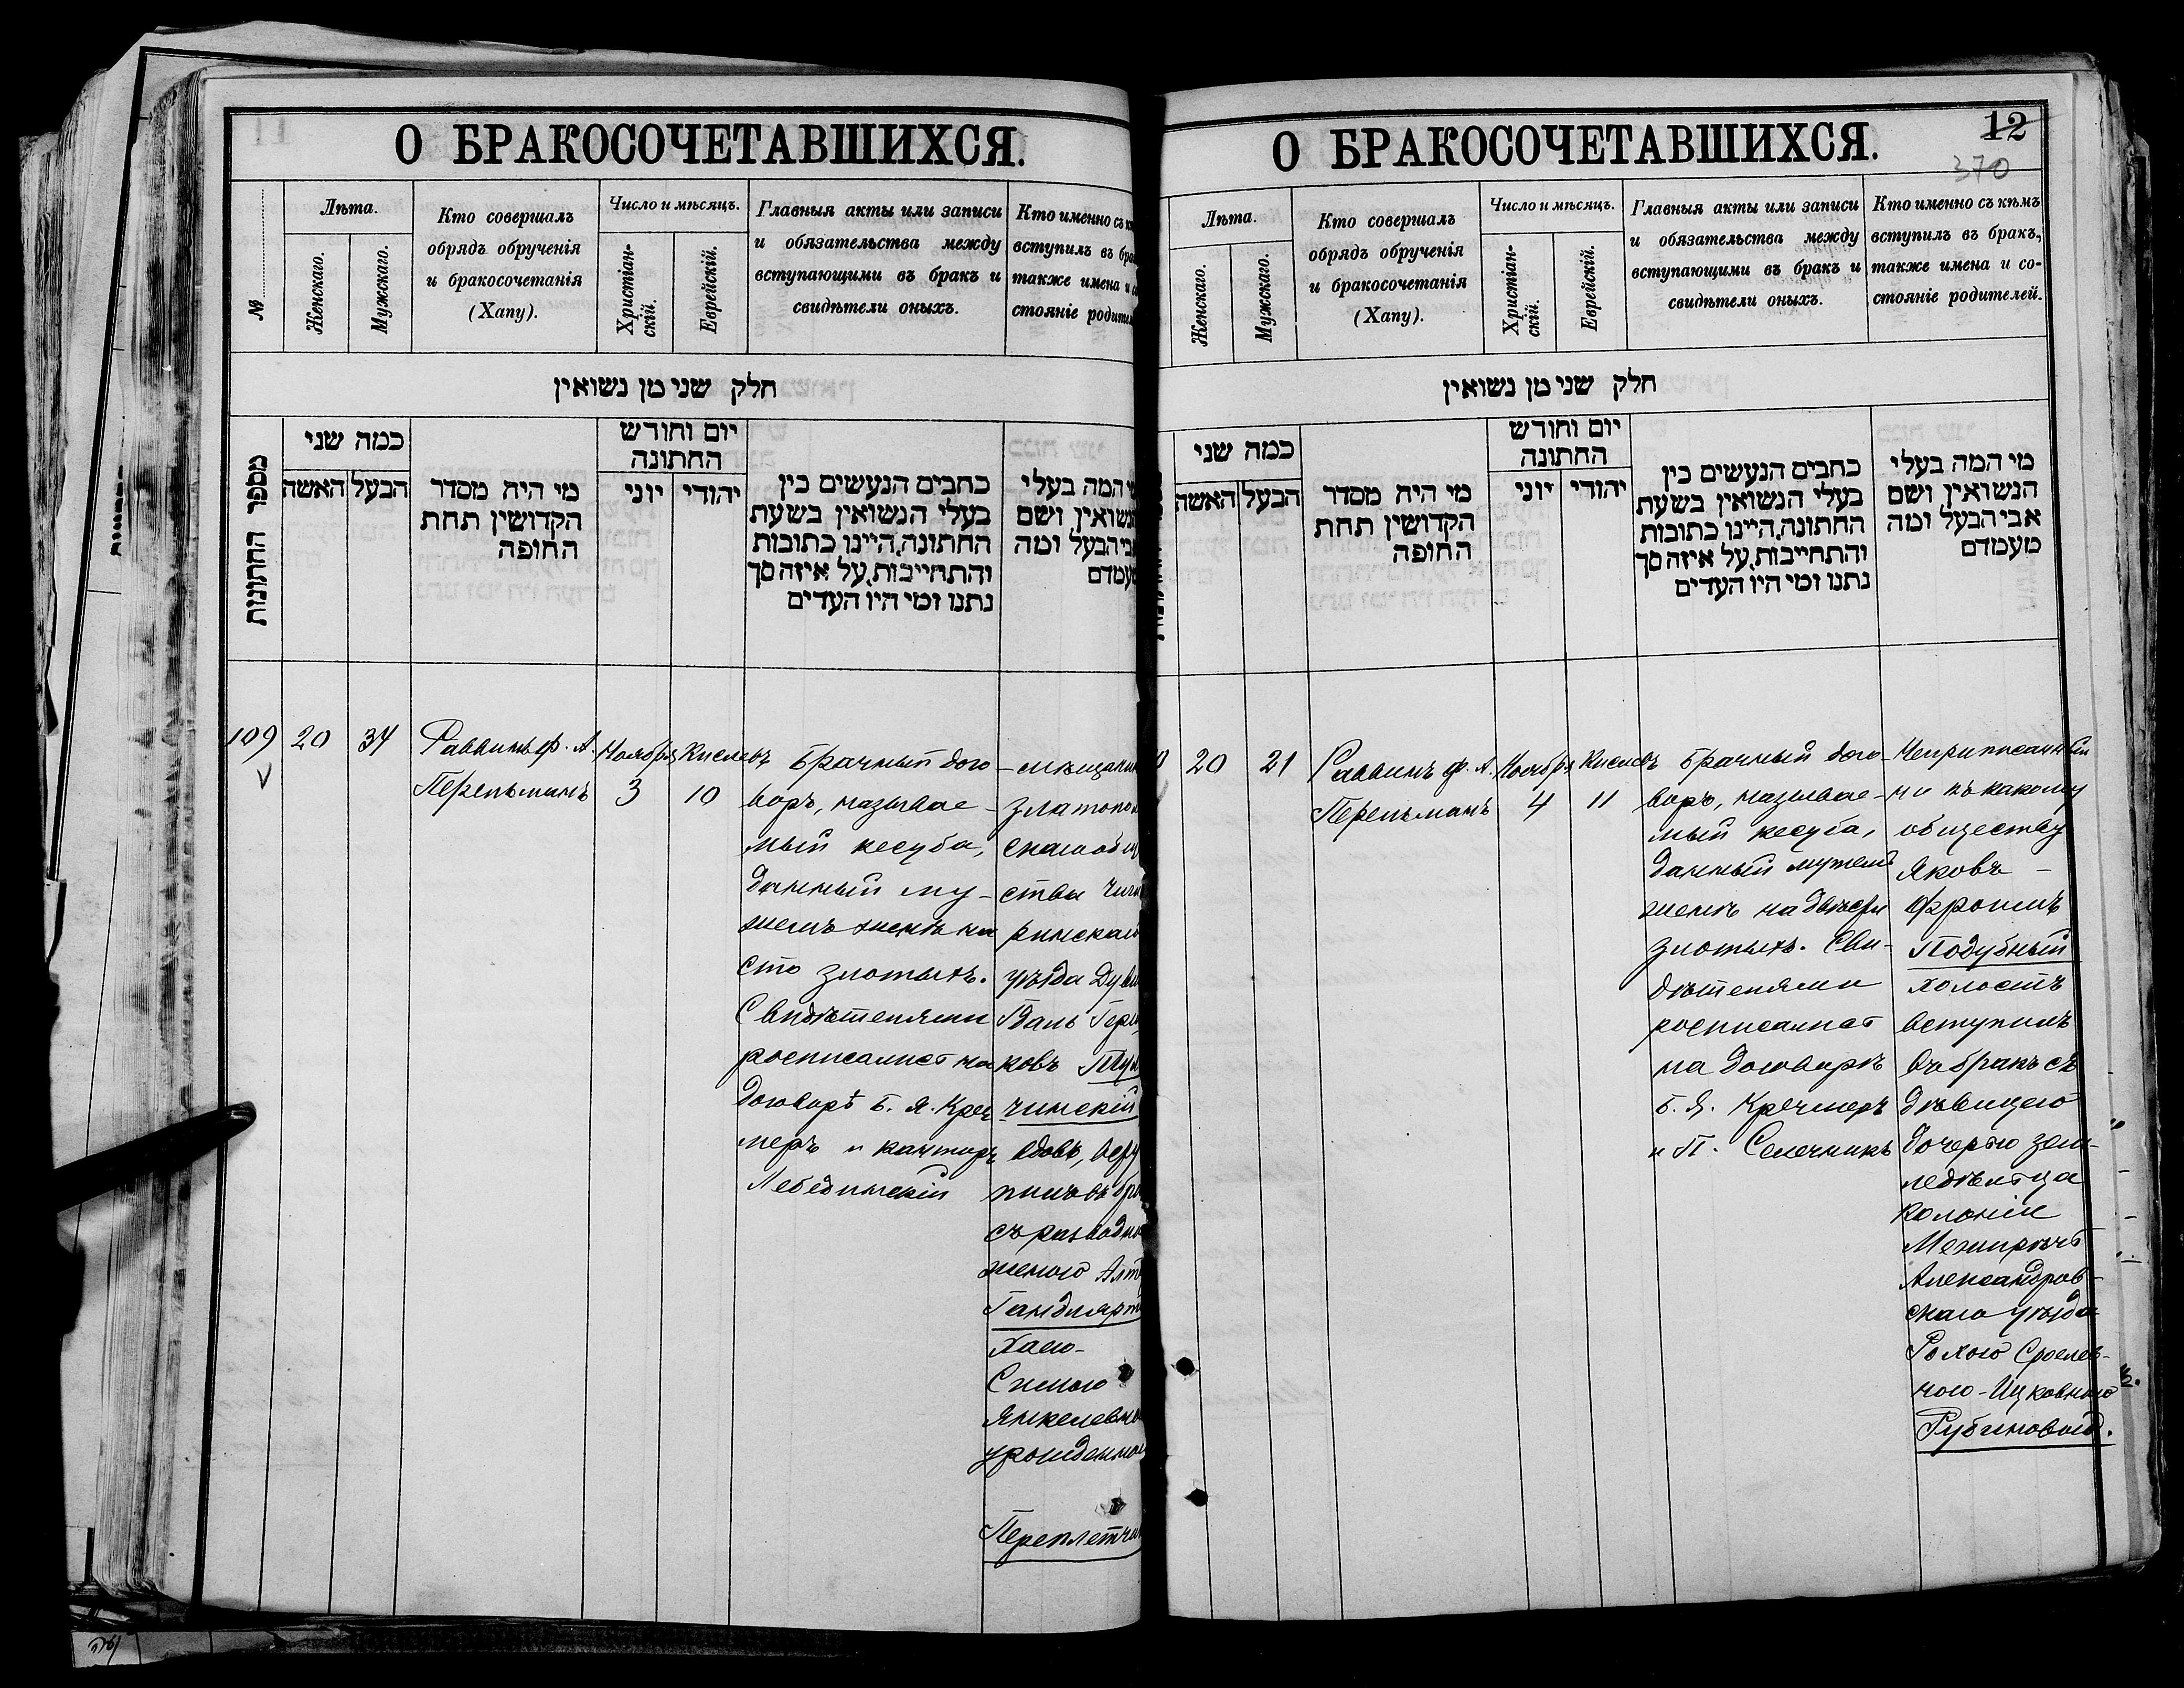 О БРАКОСОЧЕТАВШИХСЯ.
№
Лѣта.
Женскаго.
Мужскаго.
Кто совершалъ
обрядъ обрученія
и бракосочетанія
(Хапу).
Число и мѣсяцъ.
Христіан-
скій.
Еврейскій.
Главныя акты или записи
и обязательства между
вступающими въ бракъ и
свидѣтели оныхъ.
Кто именно съ
вступилъ въ
также имена и
стояніе
חלק שני מן נשואין
מספר החתונות
כמה שני
האשה
הבעל
מי היה מסדר
הקדושין תחת
החופה
יום וחודש
החתונה
יוני
יהודי
כתבים הנעשים בין
בעלי הנשואין בשעת
החתונה, היינו כתובות
והתחייבות, על איזה סך
נתנו ומי היו העדים
המה בעלי
ושם
הבעל ומה
109
20
34
Раввинъ Ф. А.
Перельманъ
Ноября
3
Кислевъ
10
Брачный дого-
воръ, называе-
мый кесуба,
данный му-
жемъ женѣ на
сто злотыхъ.
Свидѣтелями
росписались на
договорѣ Б. Я. Креч
меръ и канторъ
Лебединскій
ства
ринскаго
уѣзда
ковъ
чинскій
вдовъ,
съ
женою
Хаею-
Симою
Переплетчи
О БРАКОСОЧЕТАВШИХСЯ.
12
370
Лѣта.
Женскаго.
Мужскаго.
Кто совершалъ
обрядъ обрученія
и бракосочетанія
(Хапу).
Число и мѣсяцъ.
Христіан-
скій.
Еврейскій.
Главныя акты или записи
и обязательства между
вступающими въ бракъ и
свидѣтели оныхъ.
Кто именно съ кѣмъ
вступилъ въ бракъ,
также имена и со-
стояніе родителей.
חלק שני מן נשואין
כמה שני
האשה
הבעל
מי היה מסדר
הקדושין תחת
החופה
יום וחודש
החתונה
יוני
יהודי
כתבים הנעשים בין
בעלי הנשואין בשעת
החתונה, היינו כתובות
והתחייבות, על איזה סך
נתנו ומי היו העדים
מי המה בעלי
הנשואין ושם
אבי הבעל ומה
מעמדם
20
21
Раввинъ Ф. А.
Перельманъ
Ноября
4
Кислевъ
11
Брачный дого-
воръ, называе-
мый кесуба,
данный мужемъ
женѣ на двѣсти
злотыхъ. Сви-
дѣтелями
росписались
на договорѣ
Б. Я. Кречмеръ
и П. Селечникъ
Неприписанный
ни къ какому
обществу
Яковъ -
Фроимъ
Подубный
холостъ
вступилъ
въ бракъ съ
дѣвицею
дочерью зем-
ледѣльца
колоніи
Межирѣчъ
Александров-
скаго уѣзда
Рохою Сроелев-
ною-Ицковною
Рубиновой.